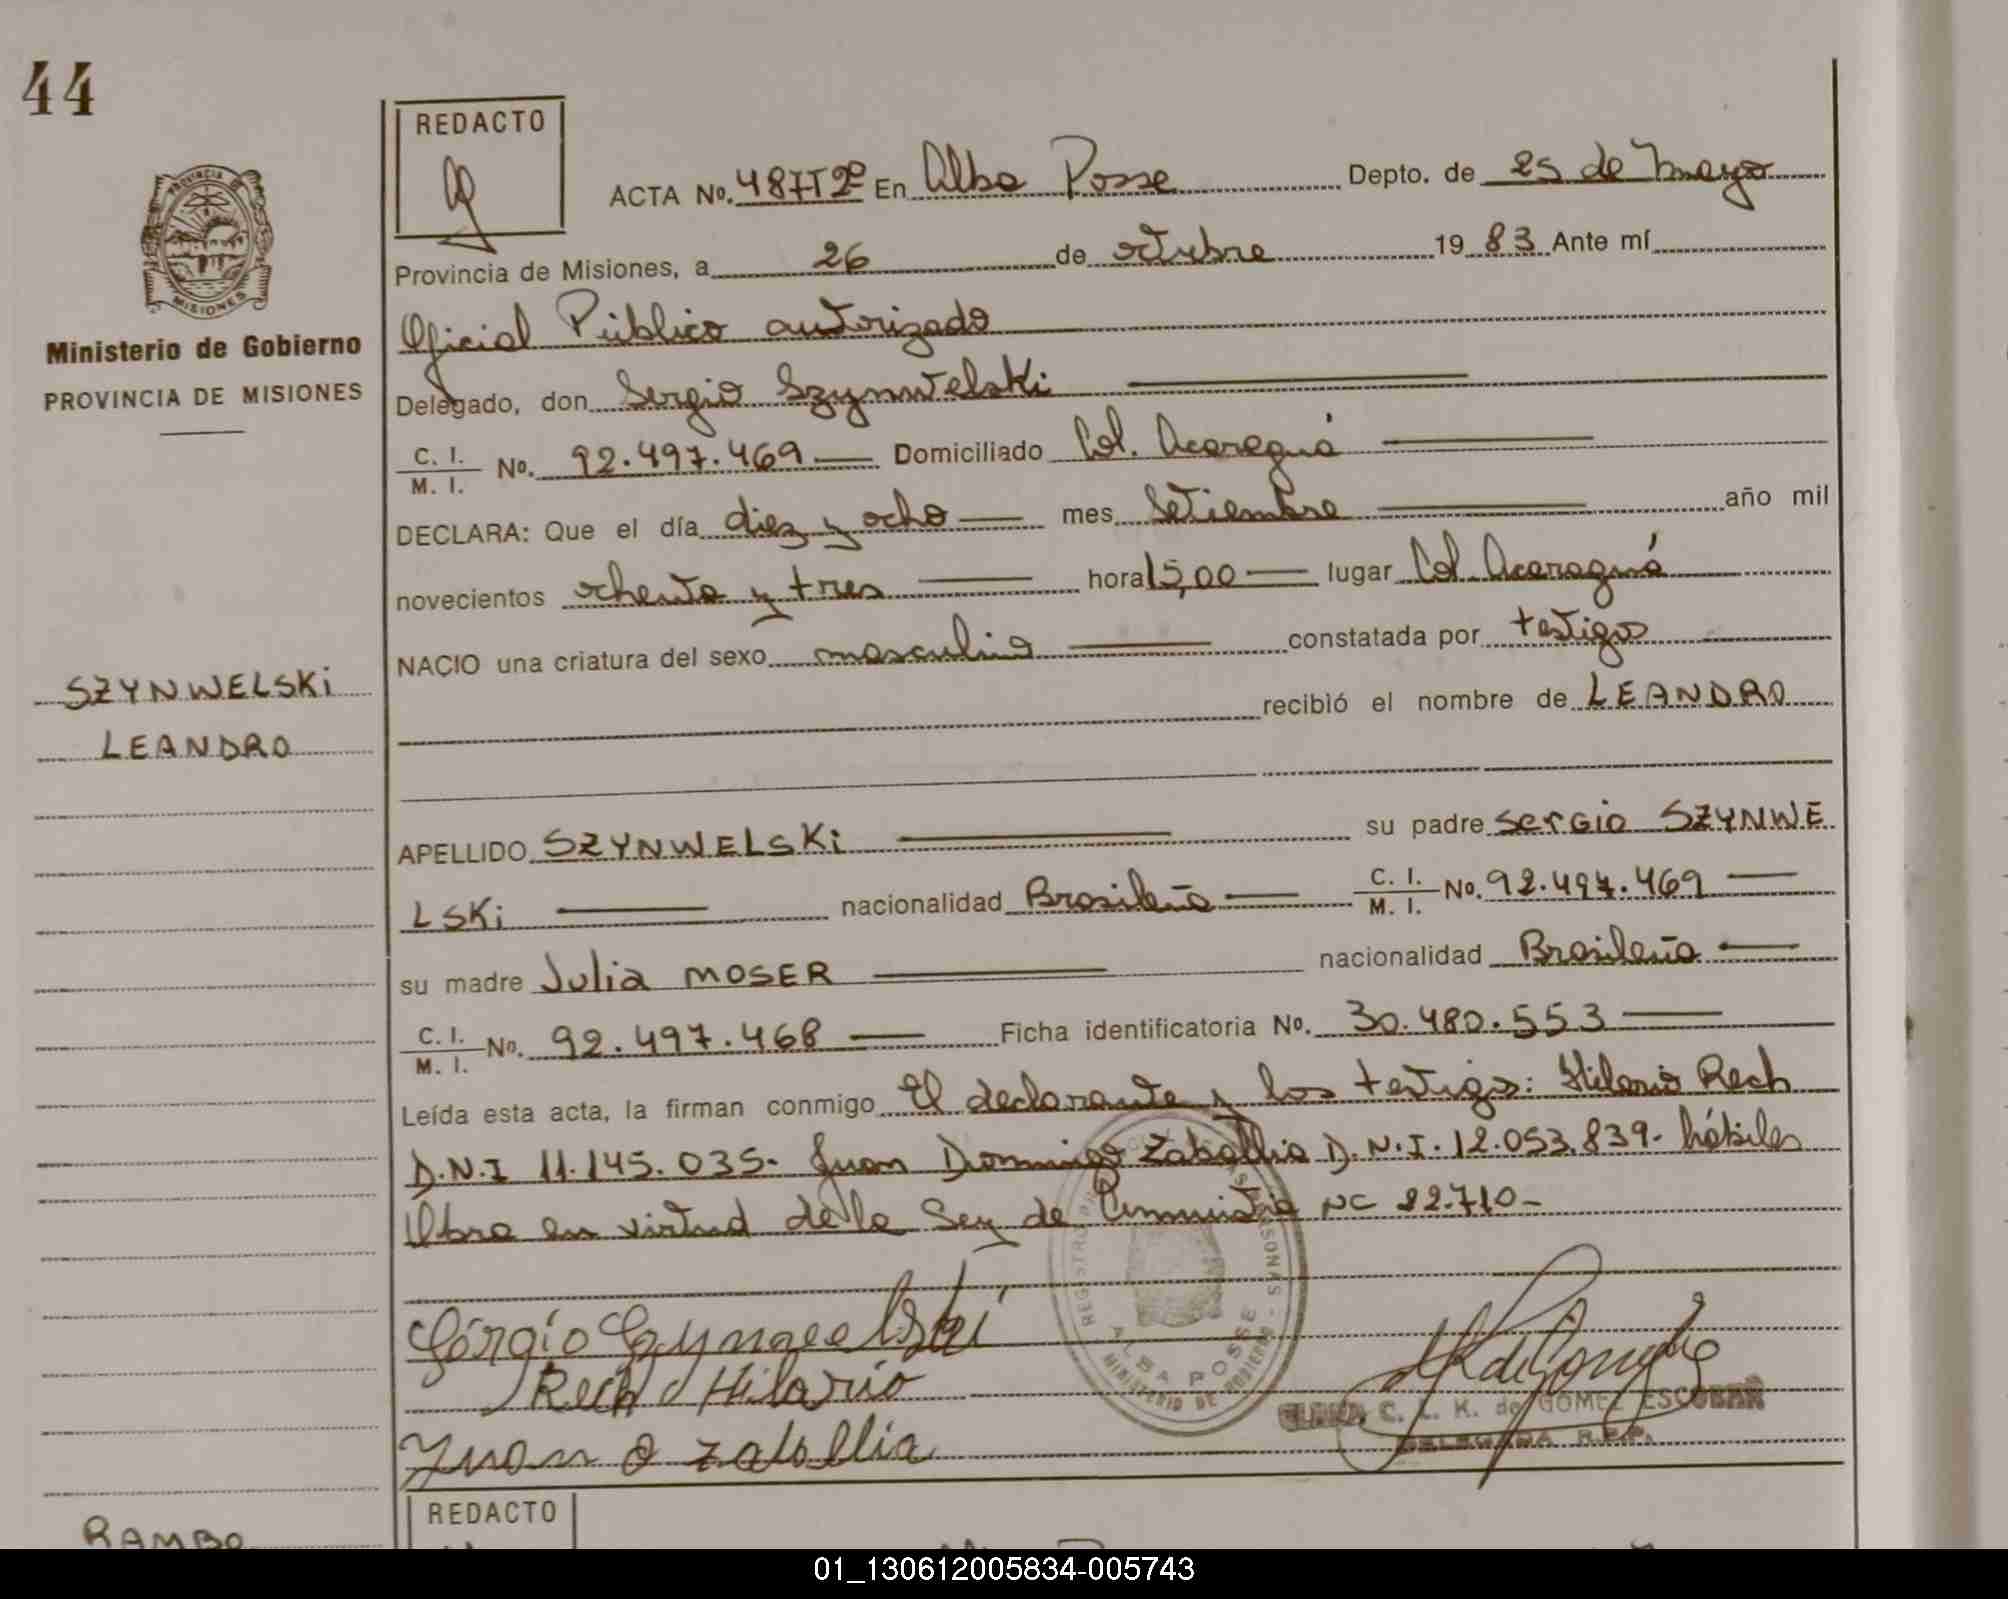 44
REDACTO
ACTA No. 487T2º En Alba Posse Depto. de 25 de Mayo
Provincia de Misiones, a 26 de octubre 19 83 Ante mí
Oficial Público autorizado
PROVINCIA DE
MISIONES
Ministerio de Gobierno
PROVINCIA DE MISIONES
Delegado, don Sergio Szynwelski
C. I.
M. I. No. 92.497.469 Domiciliado Col. Acaraguá
DECLARA: Que el día diez y ocho mes Setiembre año mil
novecientos ochenta y tres hora 15,00 lugar Col. Acaraguá
NACIO una criatura del sexo masculino constatada por testigos
recibió el nombre de LEANDRO
SZYNWELSKi
LEANDRO
APELLIDO SZYNWELSKi su padre SerGio SZYNWE
LSKi nacionalidad Brasileña C. I.
M. I. No. 92.497.469
su madre Julia MOSER nacionalidad Brasileña
C. I.
M. I. No. 92.497.468 Ficha identificatoria No. 30.480.553
Leída esta acta, la firman conmigo El declarante y los testigos: Hilario Rech
D.N.I 11.145.035- Juan Domingo Zabollia D.N.I. 12.053.839- hábiles
Obra en virtud de la Ley de Amnistia Nº 22.710-
REGISTRO PERSONAS -
ALBA POSSE
MINISTERIO DE GOBIERNO
Sérgio Szynwelski
Rech Hilario
Juan D Zabollia
C. L. K. de GOMEZ ESCOBAR
DELEGADA R.P.P.
REDACTO
RAMBO
01_130612005834-005743